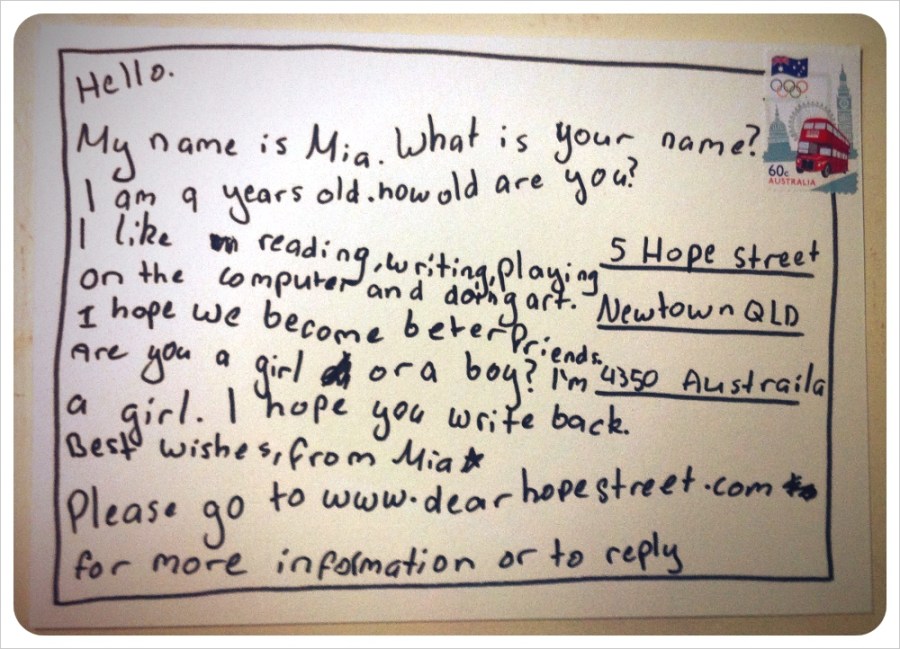 Hello.
My name is Mia. What is your name?
I am 9 years old. how old are you?
I like reading, writing, playing
on the computer and doing art.
I hope we become beter friends.
Are you a girl or a boy? I'm
a girl. I hope you write back.
Best wishes, from Mia
Please go to www.dearhopestreet.com
for more information or to reply
5 Hope street
Newtown QLD
4350 Austraila
60c
AUSTRALIA